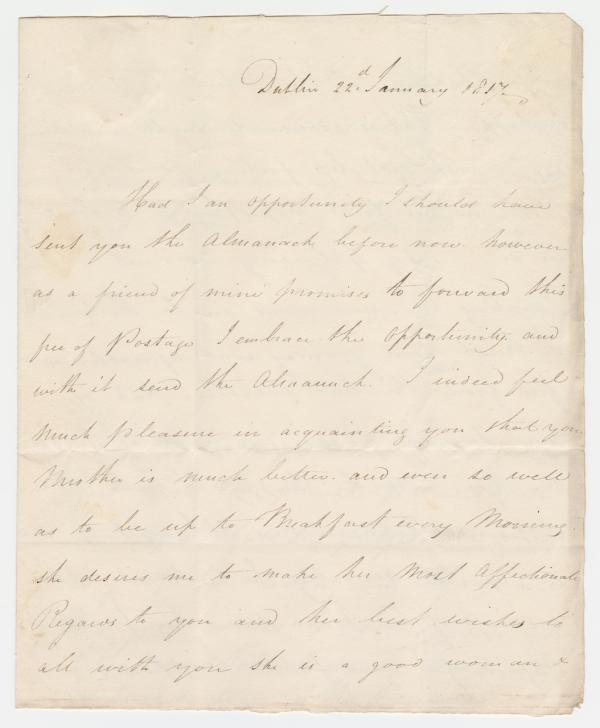 Dublin 22d January 1817
Had I an opportunity I should have
sent you the Almanack before now however
as a friend of mine promises to forward this
free of Postage I embrace the opportunity. and
with it send the Almanack. I indeed feel
much pleasure in acquainting you that your
Mother is much better. and even so well
as to be up to Breakfast every Morning.
she desires me to make her Most Affectionate
Regards to you and her best wishes to
all with you she is a good woman &